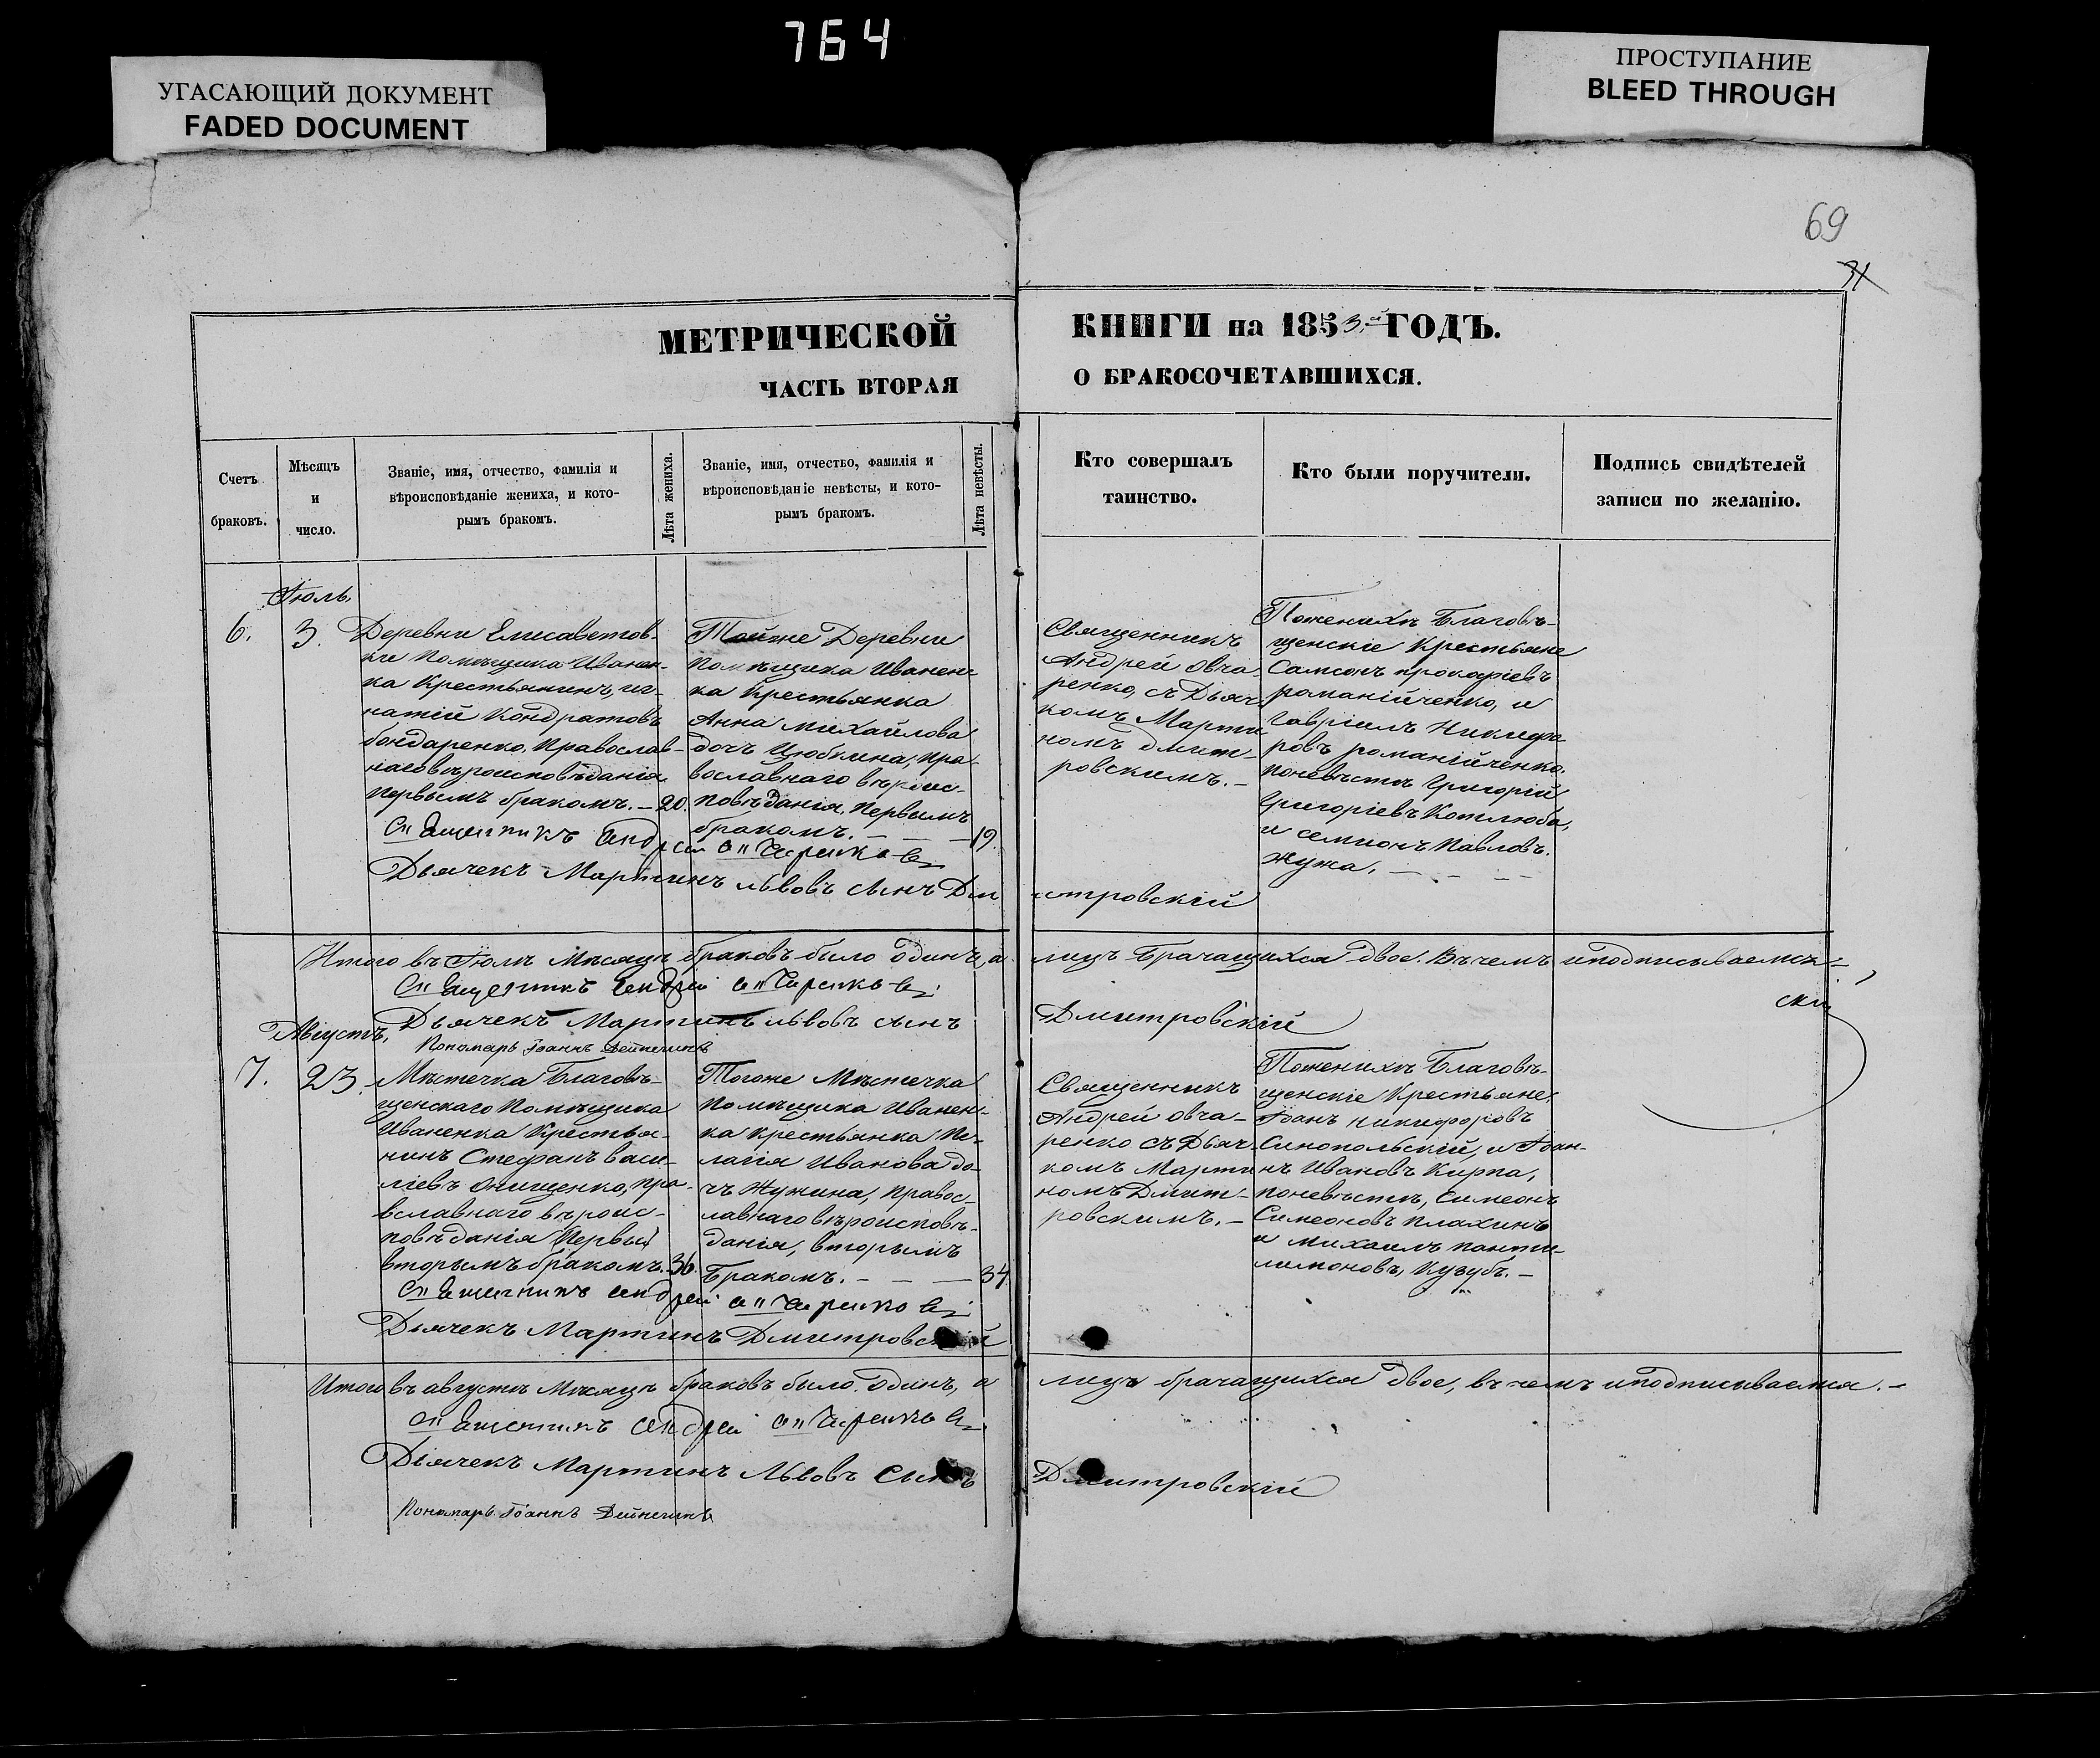 764
УГАСАЮЩИЙ ДОКУМЕНТ
FADED DOCUMENT
ПРОСТУПАНИЕ
BLEED THROUGH
69
МЕТРИЧЕСКОЙ
ЧАСТЬ ВТОРАЯ
КНИГИ на 1853 ГОДЪ.
О БРАКОСОЧЕТАВШИХСЯ.
Счетъ
браковъ.
Мѣсяцъ
и
число.
Званіе, имя, отчество, фамилія и
вѣроисповѣданіе жениха, и кото-
рымъ бракомъ.
Лѣта жениха.
Званіе, имя, отчество, фамилія и
вѣроисповѣданіе невѣсты, и кото-
рымъ бракомъ.
Лѣта невѣсты.
Кто совершалъ
таинство.
Кто были поручители.
Подпись свидѣтелей
записи по желанію.
Іюль.
6.
3.
Деревни Елисаветов-
ки Помѣщика Иванен-
ка Крестьянинъ, иг-
натій Кондратовъ
бондаренко, Православ-
наго вѣроисповѣданія
Первымъ бракомъ. – 20.
Тойже Деревни
Помѣщика Иванен-
ка Крестьянка
Анна Михайлова
дочь Цюбкина, Пра-
вославнаго вѣроис-
повѣданія, Первымъ
бракомъ. – – – 19.
Священникъ
Андрей Овча-
ренко, съ Дьяч-
комъ Марти
номъ Дмит-
ровскимъ. –
Поженихѣ Благовѣ-
щенскіе Крестьяне
Самсонъ прокопіевъ
романійченко, и
Гавріилъ Никифо
ровъ романійченко.
Поневѣстѣ Григорій
Григоріевъ Коплюба,
и семионъ Павловъ.
Жужа. – – –
Священникъ Андрей Овчаренковъ
Дьячекъ Мартинъ Львовъ сынъ Дми
итровскій
Итого въ Іюлѣ Мѣсяцѣ браковъ было Одинъ, а
лицъ Брачащихся двое. Въ чемъ иподписываемся. –
Священникъ Андрей Овчаренковъ
Дьячекъ Мартинъ Львовъ сынъ
Дмитровскій
Пономарь Іоаннъ
Августъ.
7.
23.
Мѣстечка Благовѣ-
щенскаго Помѣщика
Иваненка Крестья-
нинъ Стефанъ васи-
ліевъ Онищенко, Пра-
вславнаго вѣроис-
повѣданія Первый
вторымъ бракомъ. 36.
Тогоже Мѣстечка
Помѣщика Иванен-
ка крестьянка Пе-
лагія Иванова до-
чъ Жужина, Правос-
лавнаго вѣроисповѣ-
данія, вторымъ
Бракомъ. – – – 34
Священникъ
Андрей Овча-
ренко съ Дьяч-
комъ Марти
номъ Дмит-
ровскимъ. –
Поженихѣ Благовѣ-
щенскіе Крестьяне,
Іоанъ никифоровъ
Синопольскій, и Іоан-
нъ Ивановъ Кирпа,
Поневѣстѣ, Симеонъ
Симеоновъ плахинъ
и Михаилъ панти-
лимоновъ, Кузубъ. –
Священникъ Андрей Овчаренковъ
Дьячекъ Мартинъ Дмитровскій
Итого въ августѣ Мѣсяцѣ браковъ было Одинъ, а
лицъ брачащихся двое, въ чемъ иподписываемся. –
Священникъ Андрей Овчаренковъ
Дьячекъ Мартинъ Львовъ Сынъ
Дмитровскій
Пономарь Іоаннъ